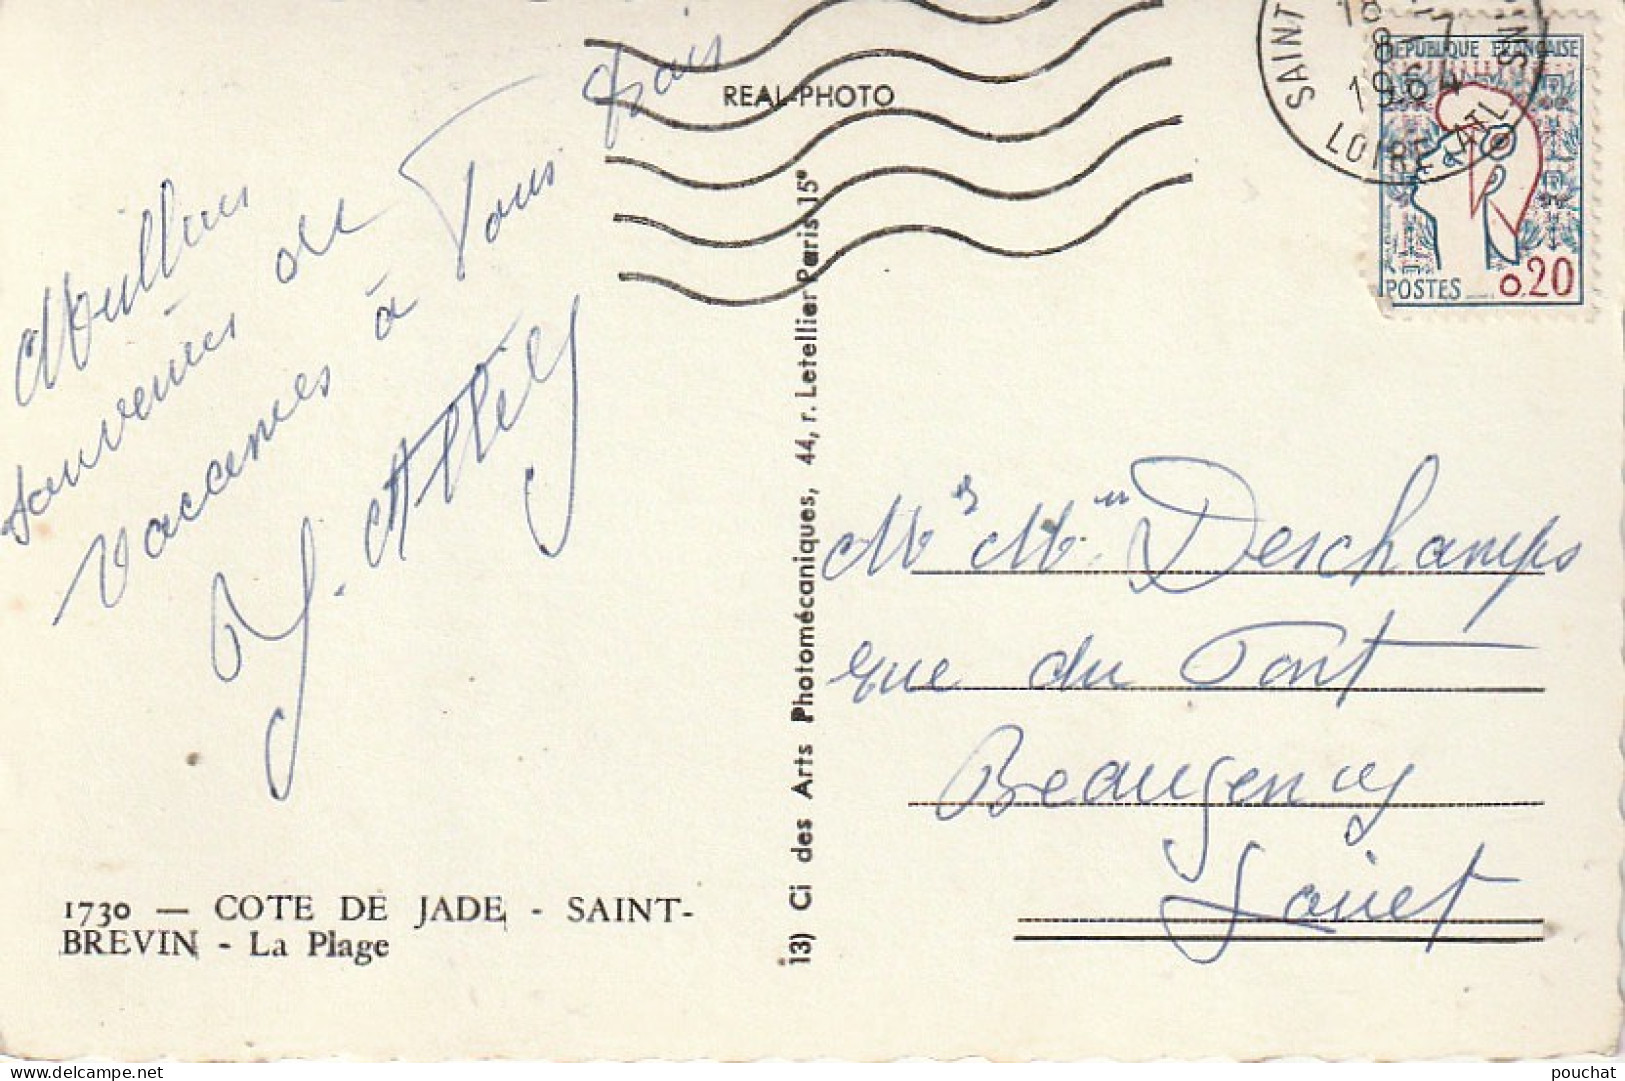 Meilleurs
souvenirs de
vacances à Tous trois
REAL-PHOTO
SAINT
18
8-7
1964
LOIRE ATL
REPUBLIQUE FRANÇAISE
POSTES 0.20
Mr & Mme Deschamps
rue du Pont
Beaugency
Loiret
13) Ci des Arts Photomécaniques, 44, r. Letellier Paris 15e
1730 — COTE DE JADE - SAINT-
BREVIN - La Plage
pouchat